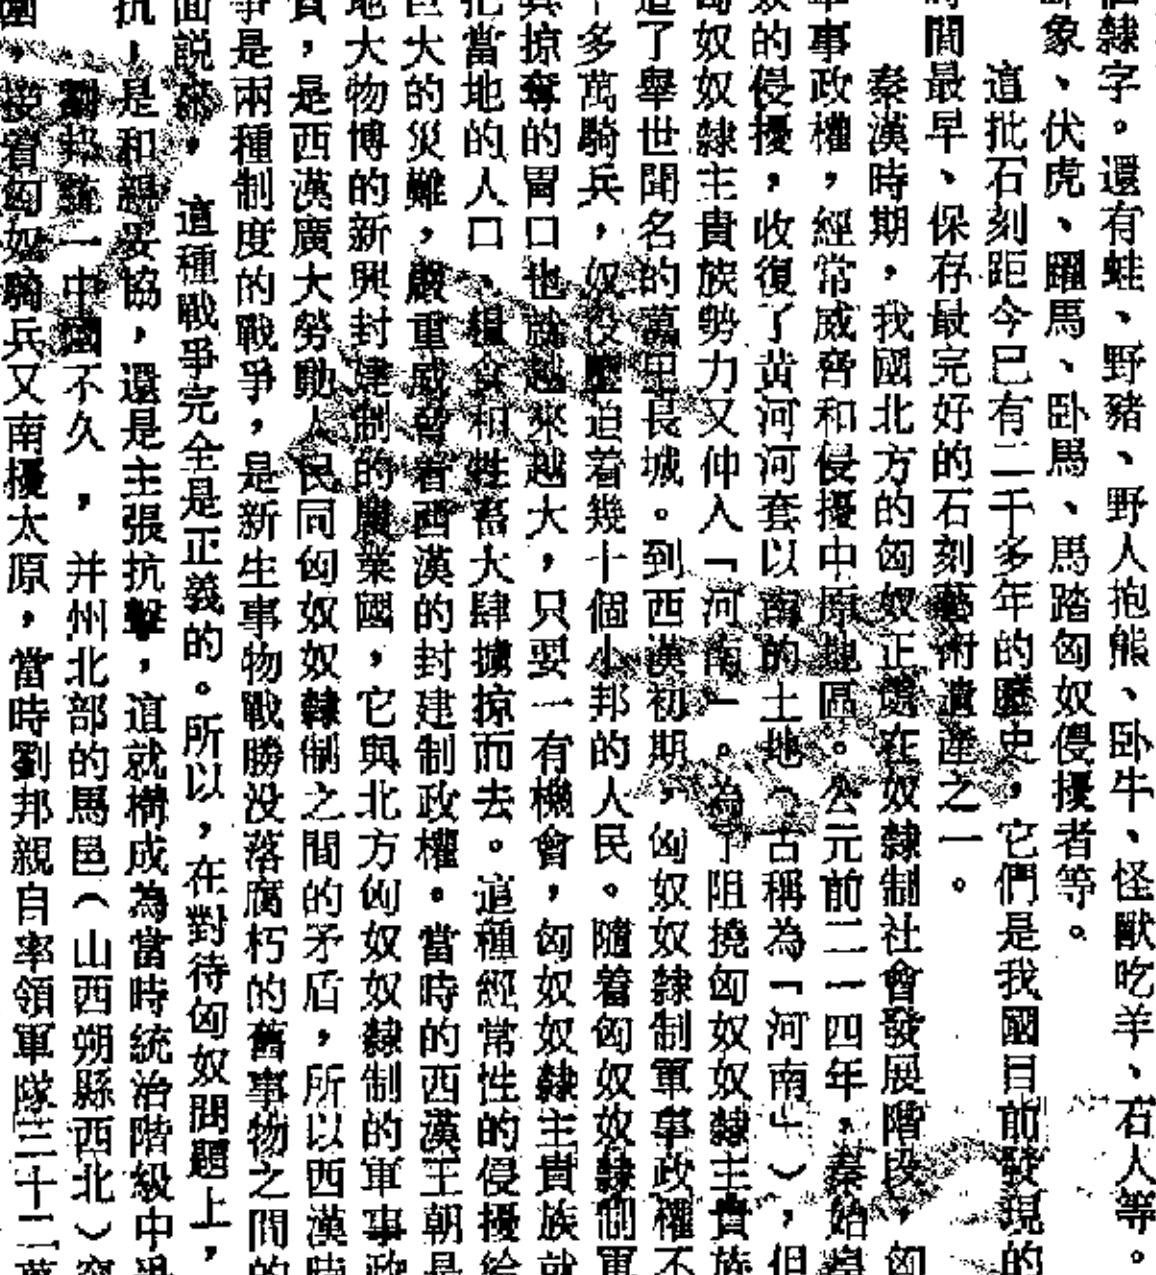 個隸字。還有蛙、野豬、野人抱熊、卧牛、怪獸吃羊、石人等。
卧象、伏虎、躍馬、卧馬、馬踏匈奴侵擾者等。
這批石刻距今已有二千多年的歷史，它們是我國目前發現的
時間最早、保存最完好的石刻藝術遺產之一。
秦漢時期，我國北方的匈奴正處在奴隸制社會發展階段，匈
軍事政權，經常威脅和侵擾中原地區。公元前二一四年，秦始皇
的侵擾，收復了黄河河套以南的土地（古稱為「河南」），但
匈奴奴隸主貴族勢力又伸入「河南」。為了阻撓匈奴奴隸主貴族
造了舉世聞名的萬里長城。到西漢初期，匈奴奴隸制軍事政權不
十多萬騎兵，奴役壓迫着幾十個小邦的人民。隨着匈奴奴隸制軍
其掠奪的胃口也就越來越大，只要一有機會，匈奴奴隸主貴族就
把當地的人口、糧食和牲畜大肆擄掠而去。這種經常性的侵擾給
巨大的災難，嚴重威脅着西漢的封建制政權。當時的西漢王朝是
地大物博的新興封建制的農業國，它與北方匈奴奴隸制的軍事政
質，是西漢廣大勞動人民同匈奴奴隸制之間的矛盾，所以西漢時
爭是兩種制度的戰爭，是新生事物戰勝没落腐朽的舊事物之間的
面説來，這種戰爭完全是正義的。所以，在對待匈奴問題上，
抗，是和親妥協，還是主張抗擊，這就構成為當時統治階級中
劉邦統一中國不久，并州北部的馬邑（山西朔縣西北）
圍，接着匈奴騎兵又南擾太原，當時劉邦親自率領軍隊三十二萬